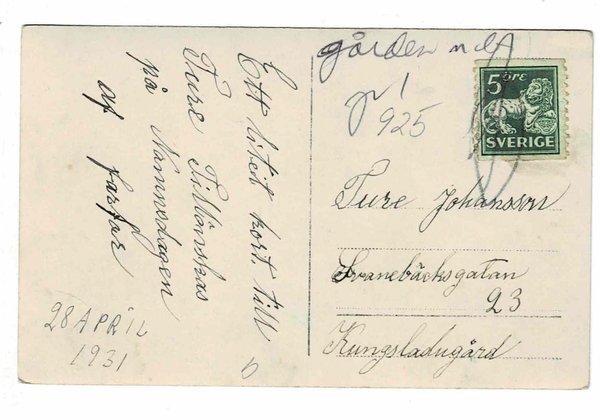 Ett litet kort till
Ture Tillönskas
på Namnsdagen
af farfar
28 APRIL
1931
gården
nr 1
925
5 ÖRE
SVERIGE
Ture Johansson
Svanebäcksgatan
23
Kungsladugård